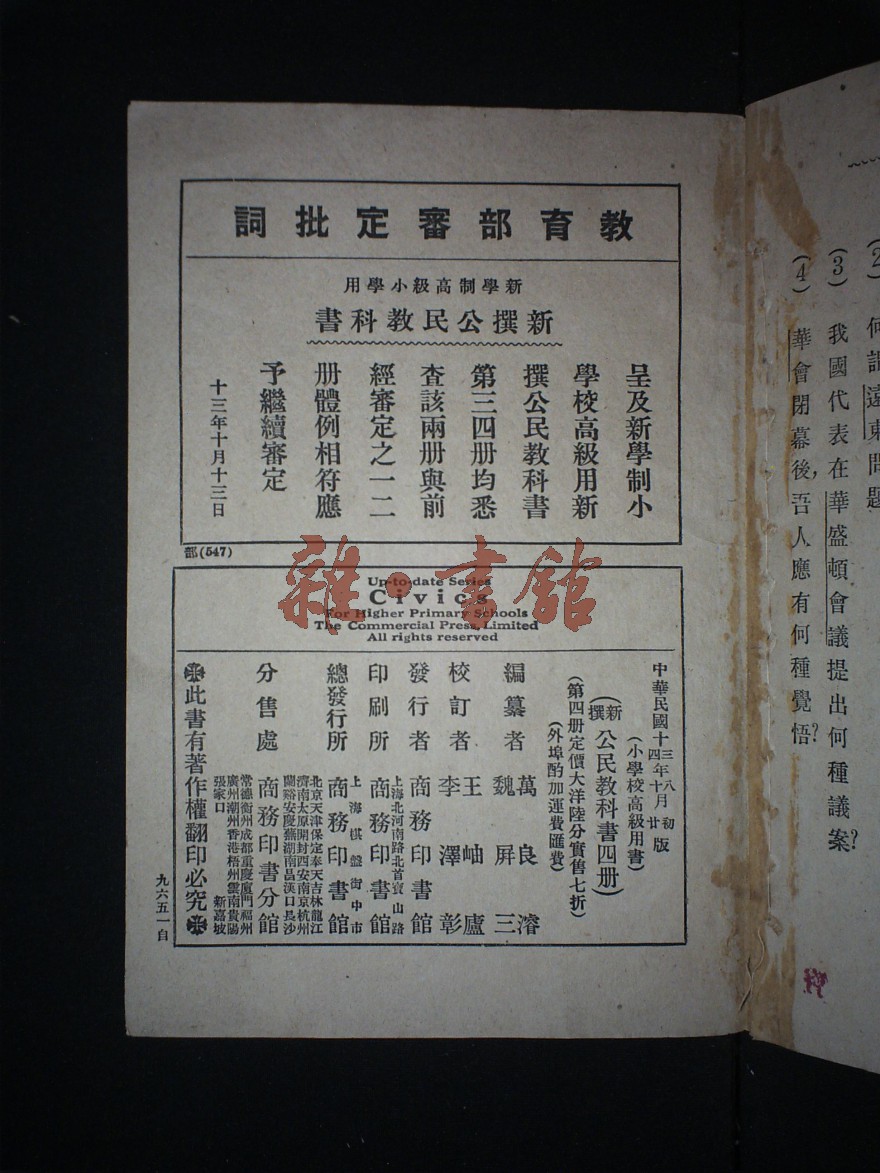 (2) 何謂遠東問題
(3) 我國代表在華盛頓會議提出何種議案?
(4) 華會閉幕後,吾人應有何種覺悟?
教育部審定批詞
新學制高級小學用
新撰公民教科書
呈及新學制小
學校高級用新
撰公民教科書
第三四册均悉
查該兩册與前
經審定之一二
册體例相符應
予繼續審定
十三年十月十三日
部(547)
雜·書館
Up-to-date Series
Civics
For Higher Primary Schools
The Commercial Press, Limited
All rights reserved
中華民國十三年八月初版
十四年十月廿版
(小學校高級用書)
(新撰)公民教科書四册)
(第四册定價大洋陸分實售七折)
(外埠酌加運費匯費)
編纂者 萬良濬
魏屏三
校訂者 王岫廬
李澤彰
發行者 商務印書館
印刷所 上海北河南路北首寶山路
商務印書館
總發行所 上海棋盤街中市
商務印書館
分售處 商務印書分館
北京天津保定奉天吉林龍江
濟南太原開封西安南京杭州
蘭谿安慶蕪湖南昌漢口長沙
常德衡州成都重慶廈門福州
廣州潮州香港梧州雲南貴陽
張家口 新嘉坡
此書有著作權翻印必究
九六五一自